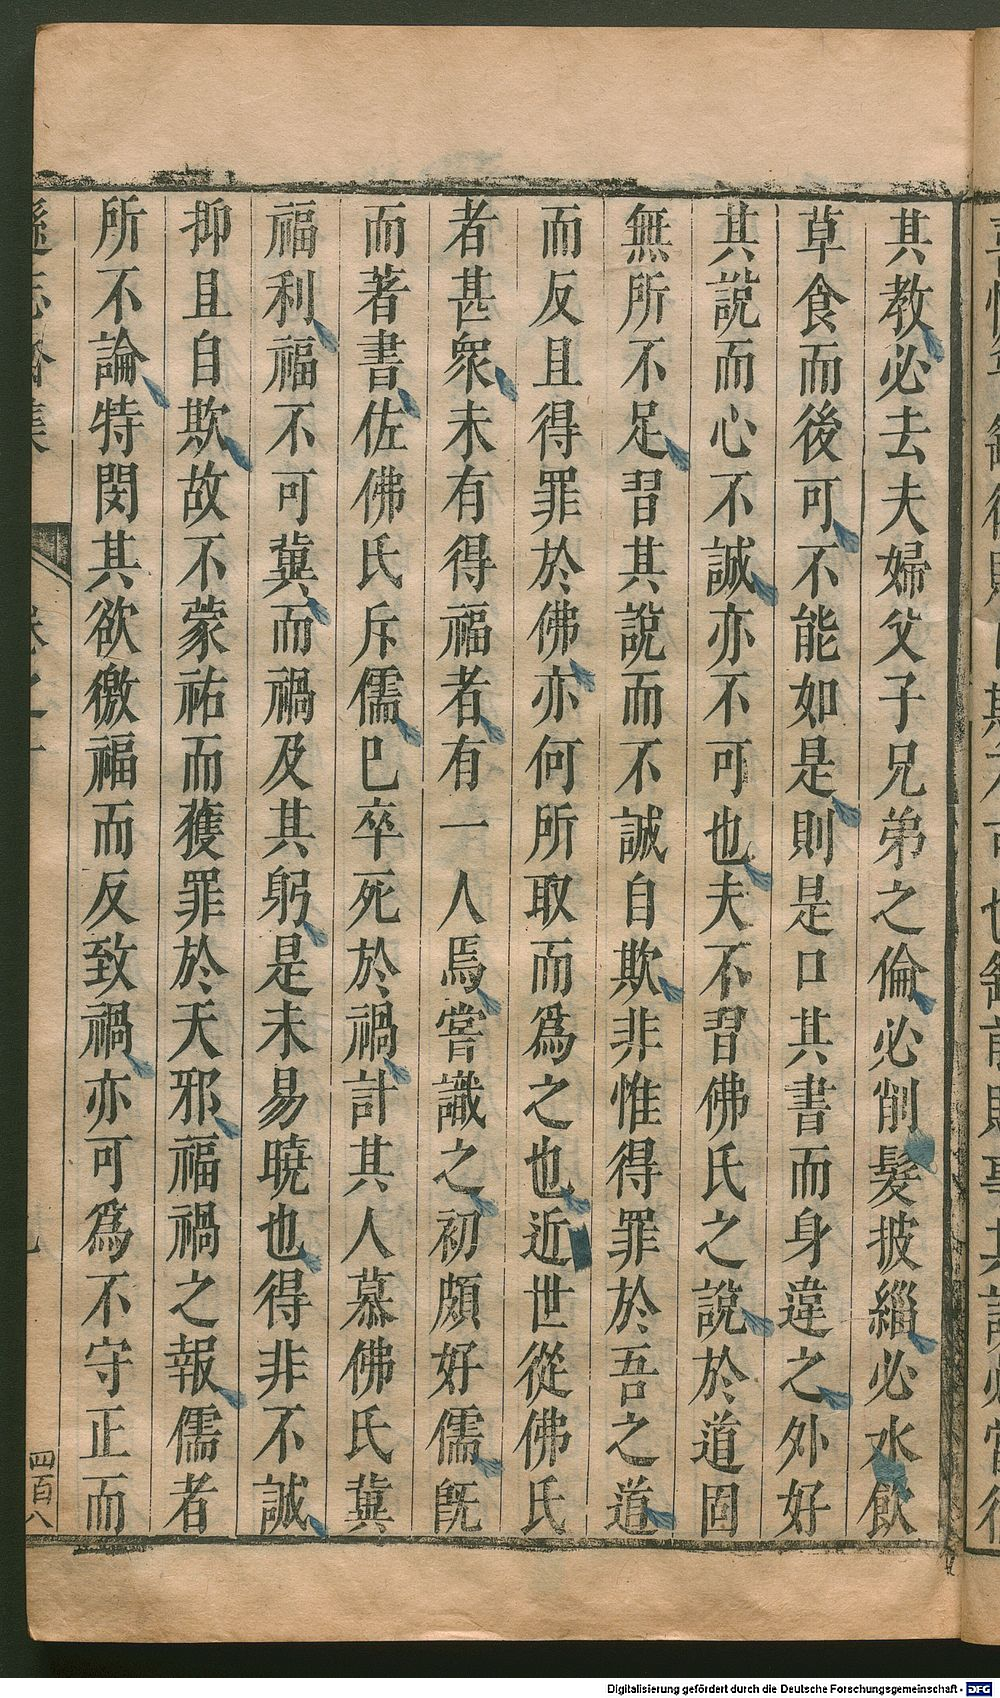 其教必去夫婦父子兄弟之倫必削髮披緇必水飲
草食而後可不能如是則是口其書而身違之外好
其說而心不誠亦不可也夫不習佛氏之說於道固
無所不足習其說而不誠自欺非惟得罪於吾之道
而反且得罪於佛亦何所取而為之也近世從佛氏
者甚衆未有得福者有一人焉嘗識之初頗好儒旣
而著書佐佛氏斥儒已卒死於禍計其人慕佛氏冀
福利福不可冀而禍及其躬是未易曉也得非不誠
抑且自欺故不蒙祐而獲罪於天邪福禍之報儒者
所不論特閔其欲徼福而反致禍亦可為不守正而
遜志齋集
卷之十
四百八
Digitalisierung gefördert durch die Deutsche Forschungsgemeinschaft - DFG